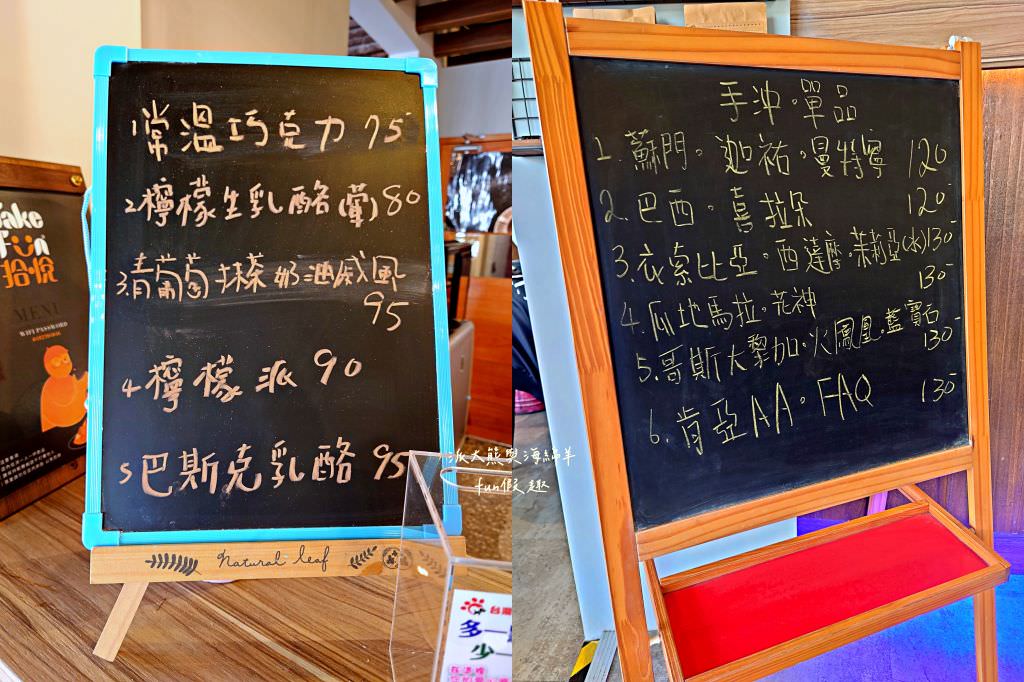 Take
Fun
拾悅
MENU
WIFI PASSWORD
1.常溫巧克力 75
2.檸檬生乳酪(葷)80
3.青葡萄抹茶奶油戚風
95
4.檸檬派 90
5.巴斯克乳酪 95
natural leaf
台灣
多一
少一
手沖。單品
1.蘇門。迦祐。曼特寧 120
2.巴西。喜拉朵 120
3.衣索比亞。西達摩。茉莉亞(水)130
4.瓜地馬拉。花神 130
5.哥斯大黎加。火鳳凰。藍寶石
130
6.肯亞AA。FAQ 130
派大熊與海綿羊
fun假趣